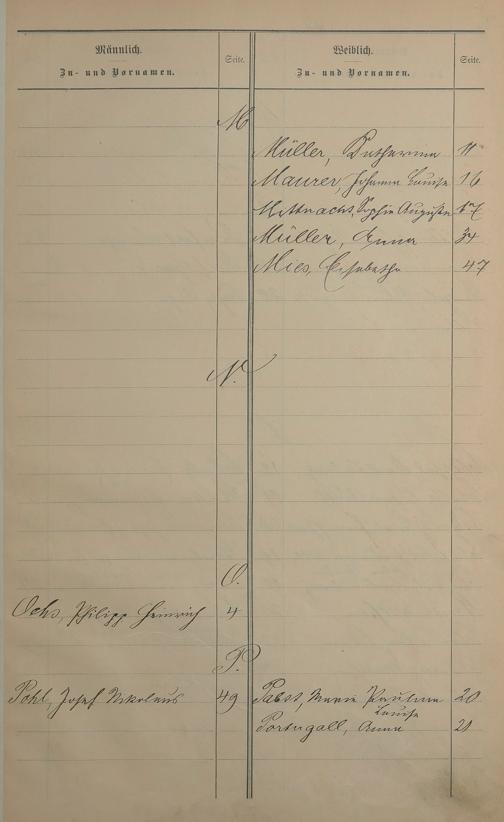 Männlich.
Zu- und Vornamen.
Seite.
Weiblich.
Zu- und Vornamen.
Seite.
M
Müller, Katharina 11
Maurer, Johanna Louise 16
Mittnacht, Sophie Auguste
Müller, Anna 34
Mies, Elisabetha 47
N.
O.
Ochs, Philipp Heinrich 4
P.
Pohl, Josef Nikolaus 49
Pabst, Maria Paulina 20
Louise
Portugall, Anna 21